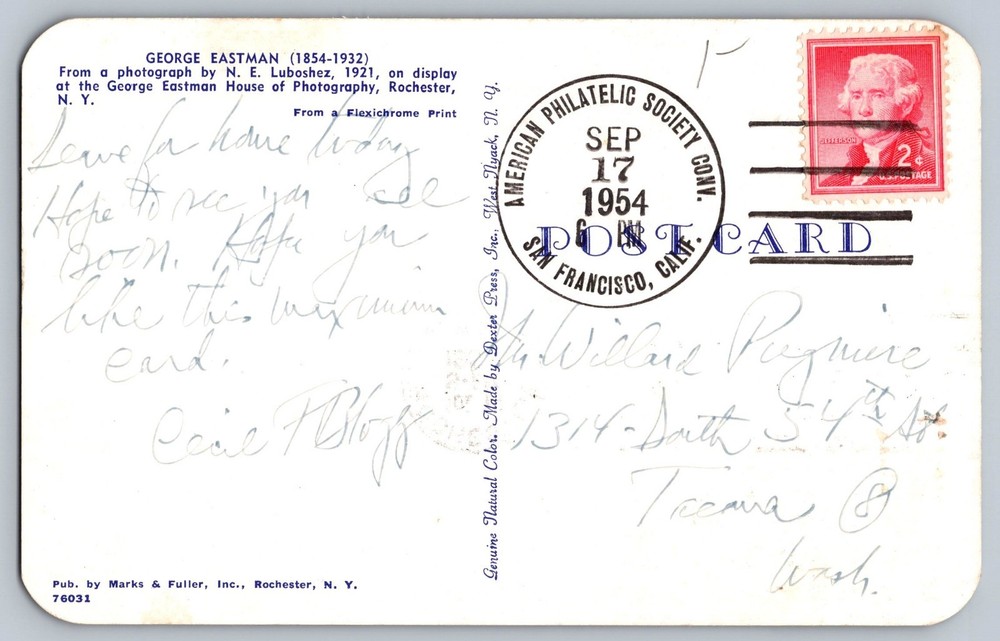 GEORGE EASTMAN (1854-1932)
From a photograph by N. E. Luboshez, 1921, on display
at the George Eastman House of Photography, Rochester,
N. Y.
From a Flexichrome Print
Leave for home today
Hope to see you all
soon. Hope you
like this maximum
card.
Cecil
Pub. by Marks & Fuller, Inc., Rochester, N. Y.
76031
Genuine Natural Color. Made by Dexter Press, Inc., West Nyack, N. Y.
AMERICAN PHILATELIC SOCIETY CONV.
SEP
17
1954
6 PM
SAN FRANCISCO, CALIF.
JEFFERSON
2¢
U.S. POSTAGE
POST CARD
Mr. Willard Pugmire
1314 - South 54th St.
Tacoma 8
Wash.